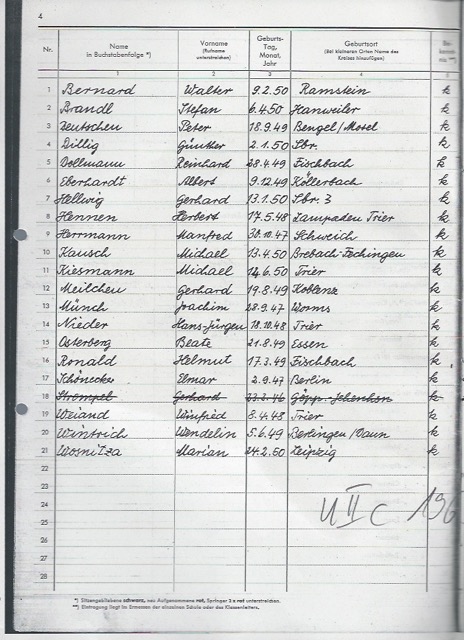 4
Nr. Name in Buchstabenfolge *) Vorname (Rufname unterstreichen) Geburts-Tag, Monat, Jahr Geburtsort (Bei kleineren Orten Name des Kreises hinzufügen)
1 2 3 4 5
1 Bernard Walter 9.2.50 Ramstein k
2 Brandl Stefan 6.4.50 Hanweiler k
3 Deutschen Peter 18.9.49 Bengel/Mosel k
4 Dillig Günther 2.1.50 Sbr. k
5 Dollmann Reinhard 28.4.49 Fischbach k
6 Eberhardt Albert 9.12.49 Köllerbach k
7 Hellwig Gerhard 13.1.50 Sbr. 3 k
8 Hennen Herbert 17.5.48 Lampaden Trier k
9 Herrmann Manfred 30.10.47 Schweich k
10 Kausch Michael 13.4.50 Brebach-Fechingen k
11 Kiesmann Michael 14.6.50 Trier k
12 Meilchen Gerhard 19.8.49 Koblenz k
13 Münch Joachim 28.9.47 Worms k
14 Nieder Hans-Jürgen 18.10.48 Trier k
15 Osterberg Beate 21.8.49 Essen k
16 Ronald Helmut 17.3.49 Fischbach k
17 Schönecker Elmar 2.9.47 Berlin k
18 Strempel Gerhard k
19 Weiand Winfried 8.4.48 Trier k
20 Wintrich Wendelin 5.6.49 Berlingen/Daun k
21 Wosnitza Marian 24.2.50 Leipzig k
22
23
24
U II c 196
25
26
27
28
*) Sitzengebliebene schwarz, neu Aufgenommene rot, Springer 3 x rot unterstreichen.
**) Eintragung liegt im Ermessen der einzelnen Schule oder des Klassenleiters.